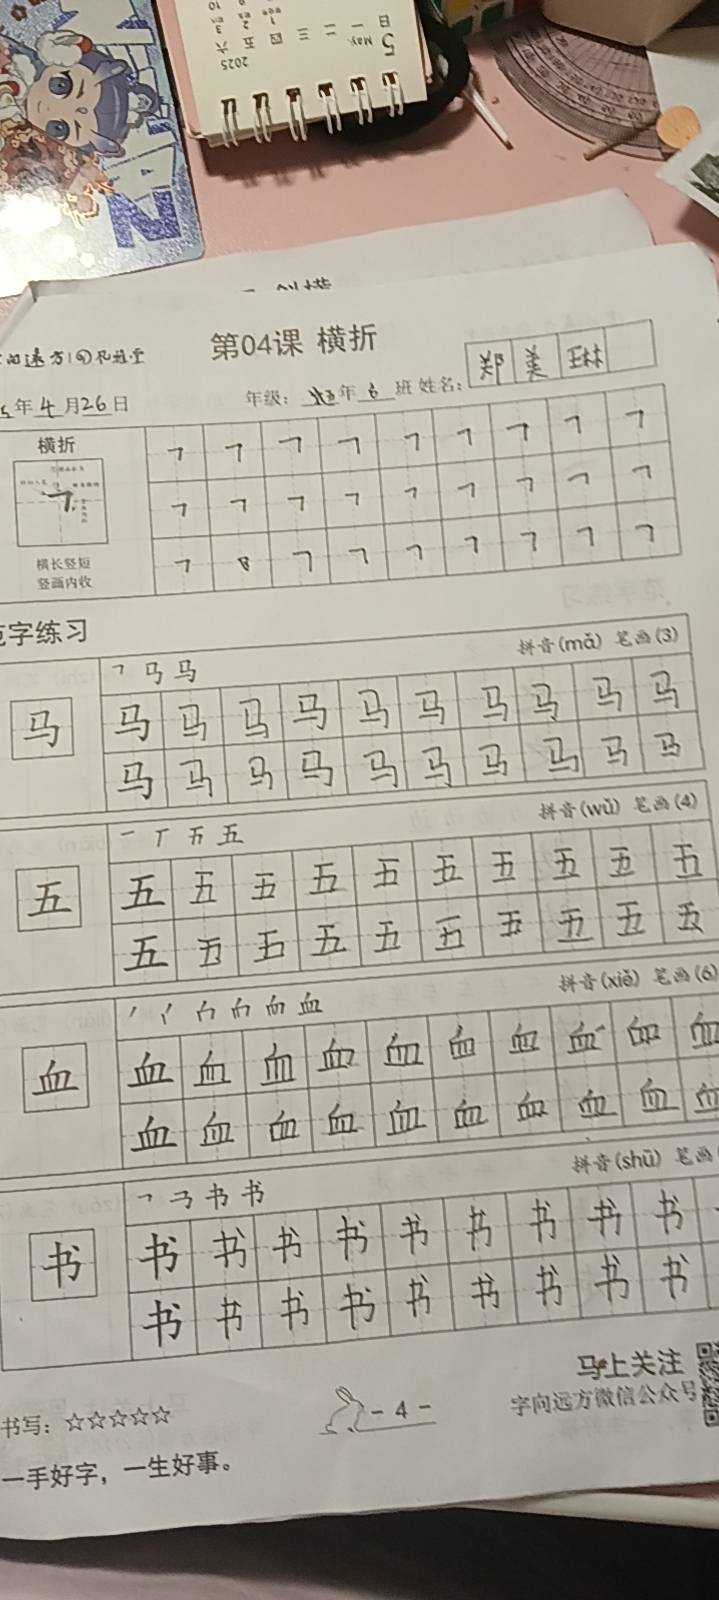 5 May.
2025
日 一 二 三 四 五 六
1 2 3
第04课 横折
年4月26日
年级： 年6班 姓名： 郑美琳
横折
横长竖短
竖画内收
字练习
拼音(mǎ) 笔画(3)
马 马
马 马 马 马 马 马 马 马 马 马 马
马 马 马 马 马 马 马 马 马 马
拼音(wǔ) 笔画(4)
一 丆 五
五 五 五 五 五 五 五 五 五 五 五
五 五 五 五 五 五 五 五 五 五
拼音(xiě) 笔画(6)
血
血 血 血 血 血 血 血 血 血 血 血
血 血 血 血 血 血 血 血 血 血
拼音(shū) 笔画
书 书
书 书 书 书 书 书 书 书 书 书
书 书 书 书 书 书 书 书 书
马上关注
书写：☆☆☆☆☆
- 4 -
字向远方微信公众号
一手好字，一生好事。